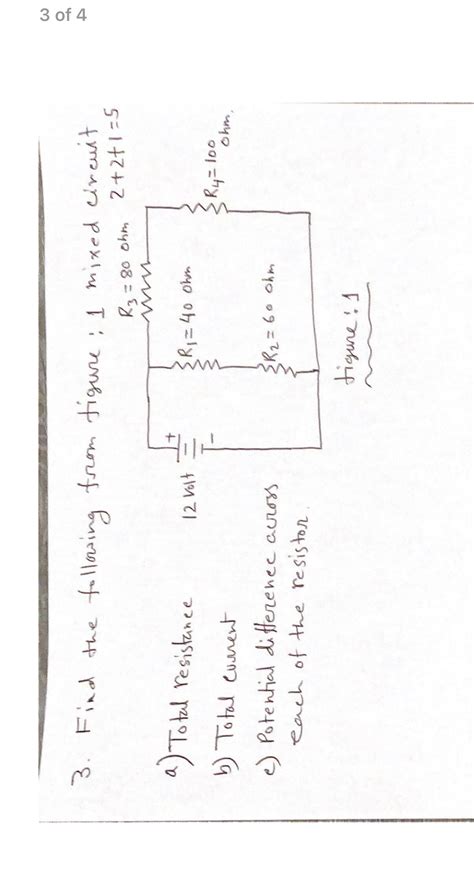 3 of 4
3. Find the following from figure : 1 mixed circuit
2+2+1=5
a) Total resistance
b) Total current
c) Potential difference across
each of the resistor.
12 volt
+
-
R1 = 40 ohm
R2 = 60 ohm
R3 = 80 ohm
R4 = 100
ohm.
figure : 1